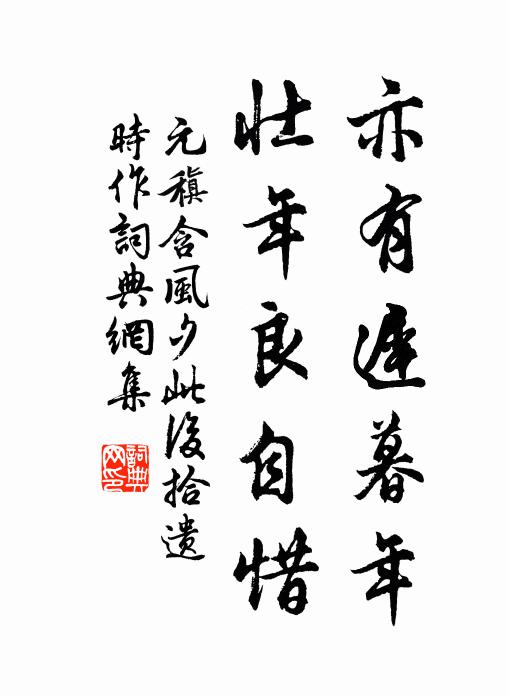 亦有遲暮年
壯年良自惜
元稹含風夕此後拾遺
時作詞典網集
詞典網印